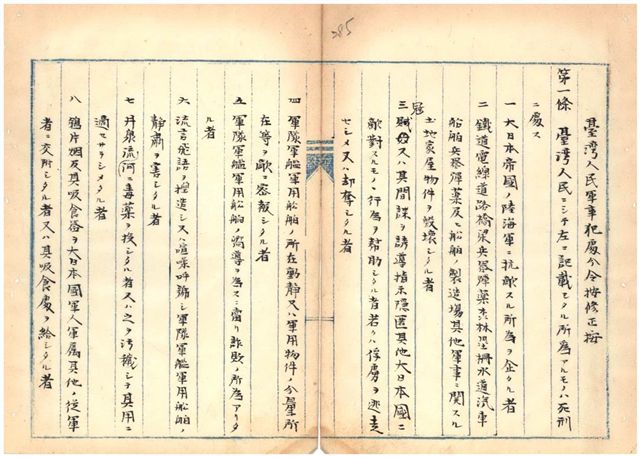 285
臺湾人民軍事犯處分令按修正按
第一條 臺湾人民ニシテ左ニ記載シタル所為アルモノハ死刑
ニ處ス
一 大日本帝國ノ陸海軍ニ抗敵スル所為ヲ企タル者
二 鐵道電線道路橋梁兵器弾薬森林堡柵水道汽車
船舶兵器弾薬及ヒ船舶ノ製造場其他軍事ニ関スル
土地家屋物件ヲ毀壊シタル者
三 冦賊又ハ其間諜ヲ誘導指示隠匿其他大日本國ニ
敵對スルモノヽ行為ヲ幇助シタル者若クハ俘虜ヲ逃走
セシメ又ハ却奪シタル者
四 軍隊軍艦軍用船舶ノ所在動静又ハ軍用物件ノ分量所
在等ヲ敵ニ密報シタル者
五 軍隊軍艦軍用船舶ノ嚮導ヲ為スニ當リ詐欺ノ所為アリタ
ル者
六 流言飛語ヲ捏造シ又ハ喧噪呼號シ軍隊軍艦軍用船舶ノ
静肅ヲ害シタル者
七 井泉流河ニ毒薬ヲ投シタル者又ハ之ヲ汚穢シテ其用ニ
適セサラシメタル者
八 鴉片烟及其吸食器ヲ大日本國軍人軍属其他ノ従軍
者ニ交附シタル者又ハ其吸食處ヲ給シタル者